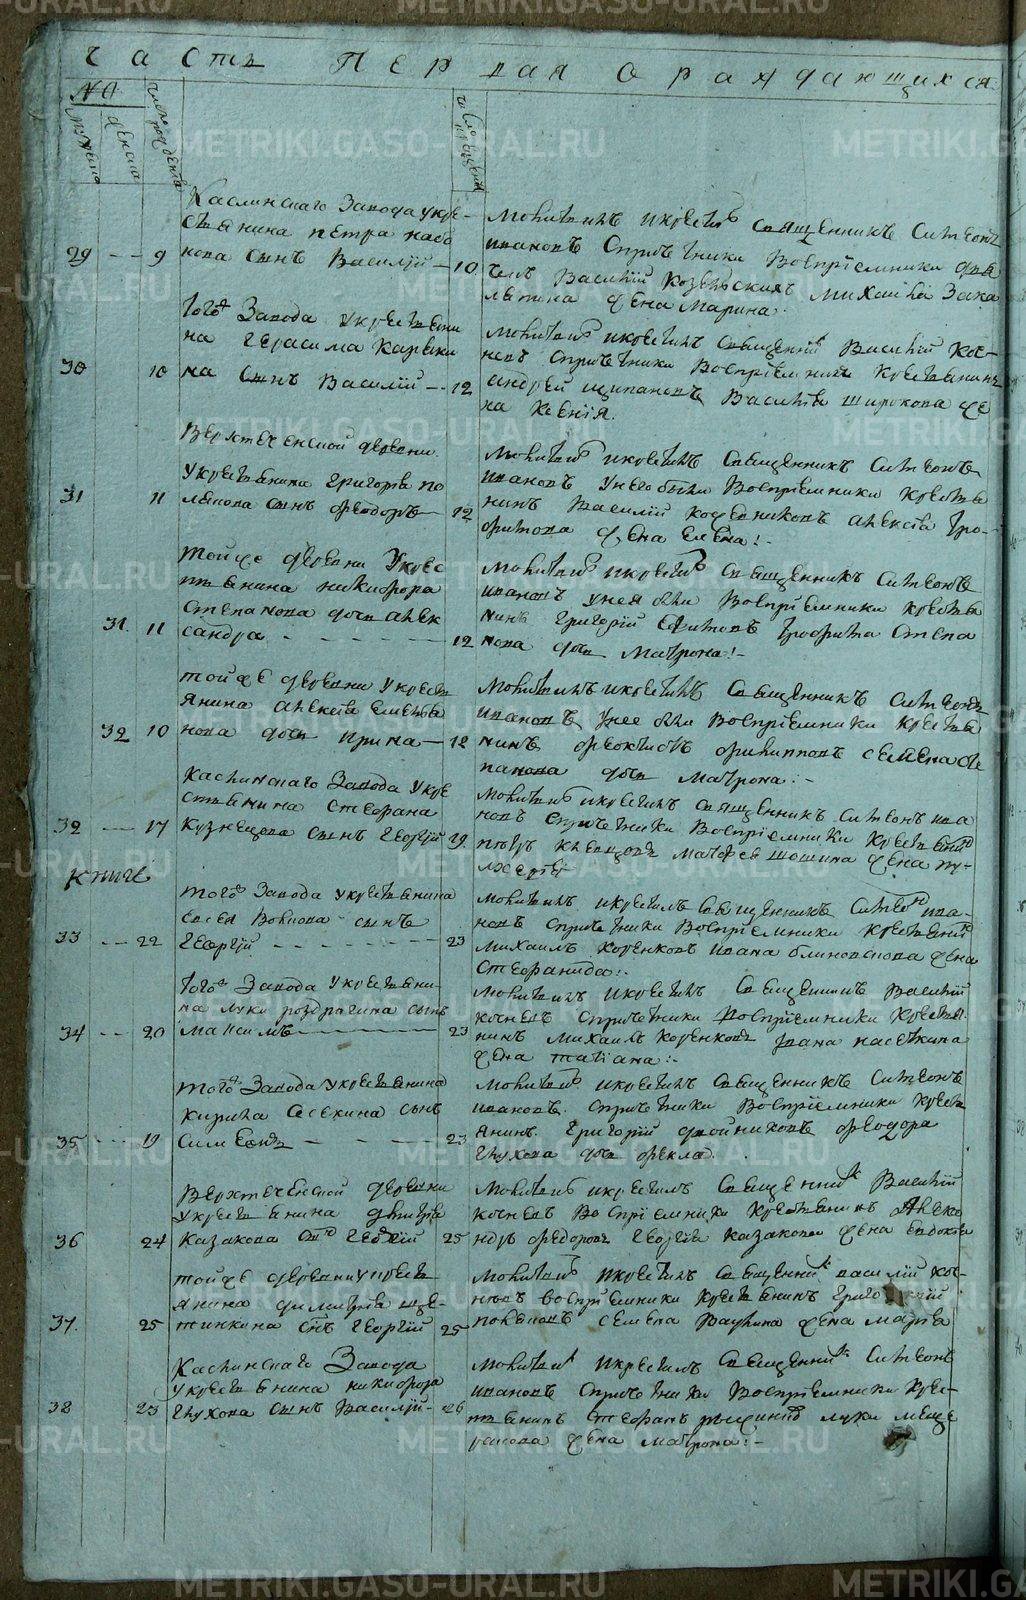 METRIKI.GASO-URAL.RU
Часть Первая О раждающихся
№
мужеска
женска
число рождения
число крещения
Каслинскаго Завода укре-
стьянина петра набо
29 -- 9 кова сынъ Василий — 10
Молитвилъ икрестилъ священникъ Симеонъ
ивановъ Спричетники Восприемники
Василий Козевскихъ Михаила Заха
жена Марина.
Того Завода укрестьяни
на Герасима Карки
30 10 на Сынъ Василий — 12
Молитвилъ икрестилъ Священникъ Василий Кос-
невъ Спричетники Восприемники крестьянинъ
андрей щипановъ Василия широкова же
на Ксения.
Верхтеченской деревни
укрестьянина григория по
31 11 лекова сынъ феодоръ — 12
Молитвилъ икрестилъ Священникъ Симеонъ
ивановъ Унего были Восприемники крестья
нинъ Василий кожевниковъ алексея тро-
фимова жена Елена:-
тойже деревни Укрес
тьянина никифора
Степанова дочь алек
31. 11 сандра - - - 12
Молитвилъ икрестилъ Священникъ Симеонъ
ивановъ унея были Восприемники крестья
нинъ григорий Ефимовъ трофима Степа
нова дочь Матрона:-
тойже деревни укресть
янина алексея Емелья
32 10 нова дочь ирина — 12
Молитвилъ икрестилъ Священникъ Симеонъ
ивановъ унее были Восприемники крестья
нинъ феоктистъ филипповъ семена сте
панова дочь Матрона:-
Каслинскаго Завода укре
стьянина стефана
32 -- 17 Кузнецова сынъ георгий 19
Молитвилъ икрестилъ священникъ симеонъ ива
новъ Спричетники Восприемники крестьянинъ
петръ клепцовъ матфея шошина жена пу-
лхерия
книге
того Завода укрестьянина
сынъ
33 -- 22 георгий - - - 23
Молитвилъ икрестилъ священникъ Симеонъ ива-
новъ Спричетники Восприемники крестьянинъ
михаилъ Коренковъ ивана блиновскова жена
Стефанида:.
того Завода укрестьяни-
на луки роздрагина сынъ
34 -- 20 Максимъ — 23
Молитвилъ икрестилъ священникъ Василий
косневъ спричетники Восприемники крестья
нинъ михаилъ коренковъ ивана наседкина
жена татиана:-
того Завода укрестьянина
кирила Сесекина сынъ
35 -- 19 Симеонъ - - - 23
Молитвилъ икрестилъ Священникъ Симеонъ
ивановъ. спричетники Восприемники крест
янинъ. григорий двойниковъ феодора
глухова дочь фекла.
Верхтеченской деревни
укрестьянина дмитрия
36 24 Казакова сынъ георгий 25
Молитвилъ икрестилъ Священникъ Василий
косневъ Восприемники крестьянинъ Алекса
ндръ федоровъ георгия казакова жена Евдокия
тойже деревни укресть
янина димитрия ще-
37. 25 тинкина сынъ георгий 25
Молитвилъ икрестилъ Священникъ василий кос-
невъ восприемники крестьянинъ григорий
семена жена мария
Каслинскаго Завода
укрестьянина никифора
38 23 глухова сынъ Василий - 26
Молитвилъ икрестилъ Священникъ Симеонъ
ивановъ спричетники Восприемники крес-
тьянинъ Стефанъ луки меще
рякова жена матрона:-